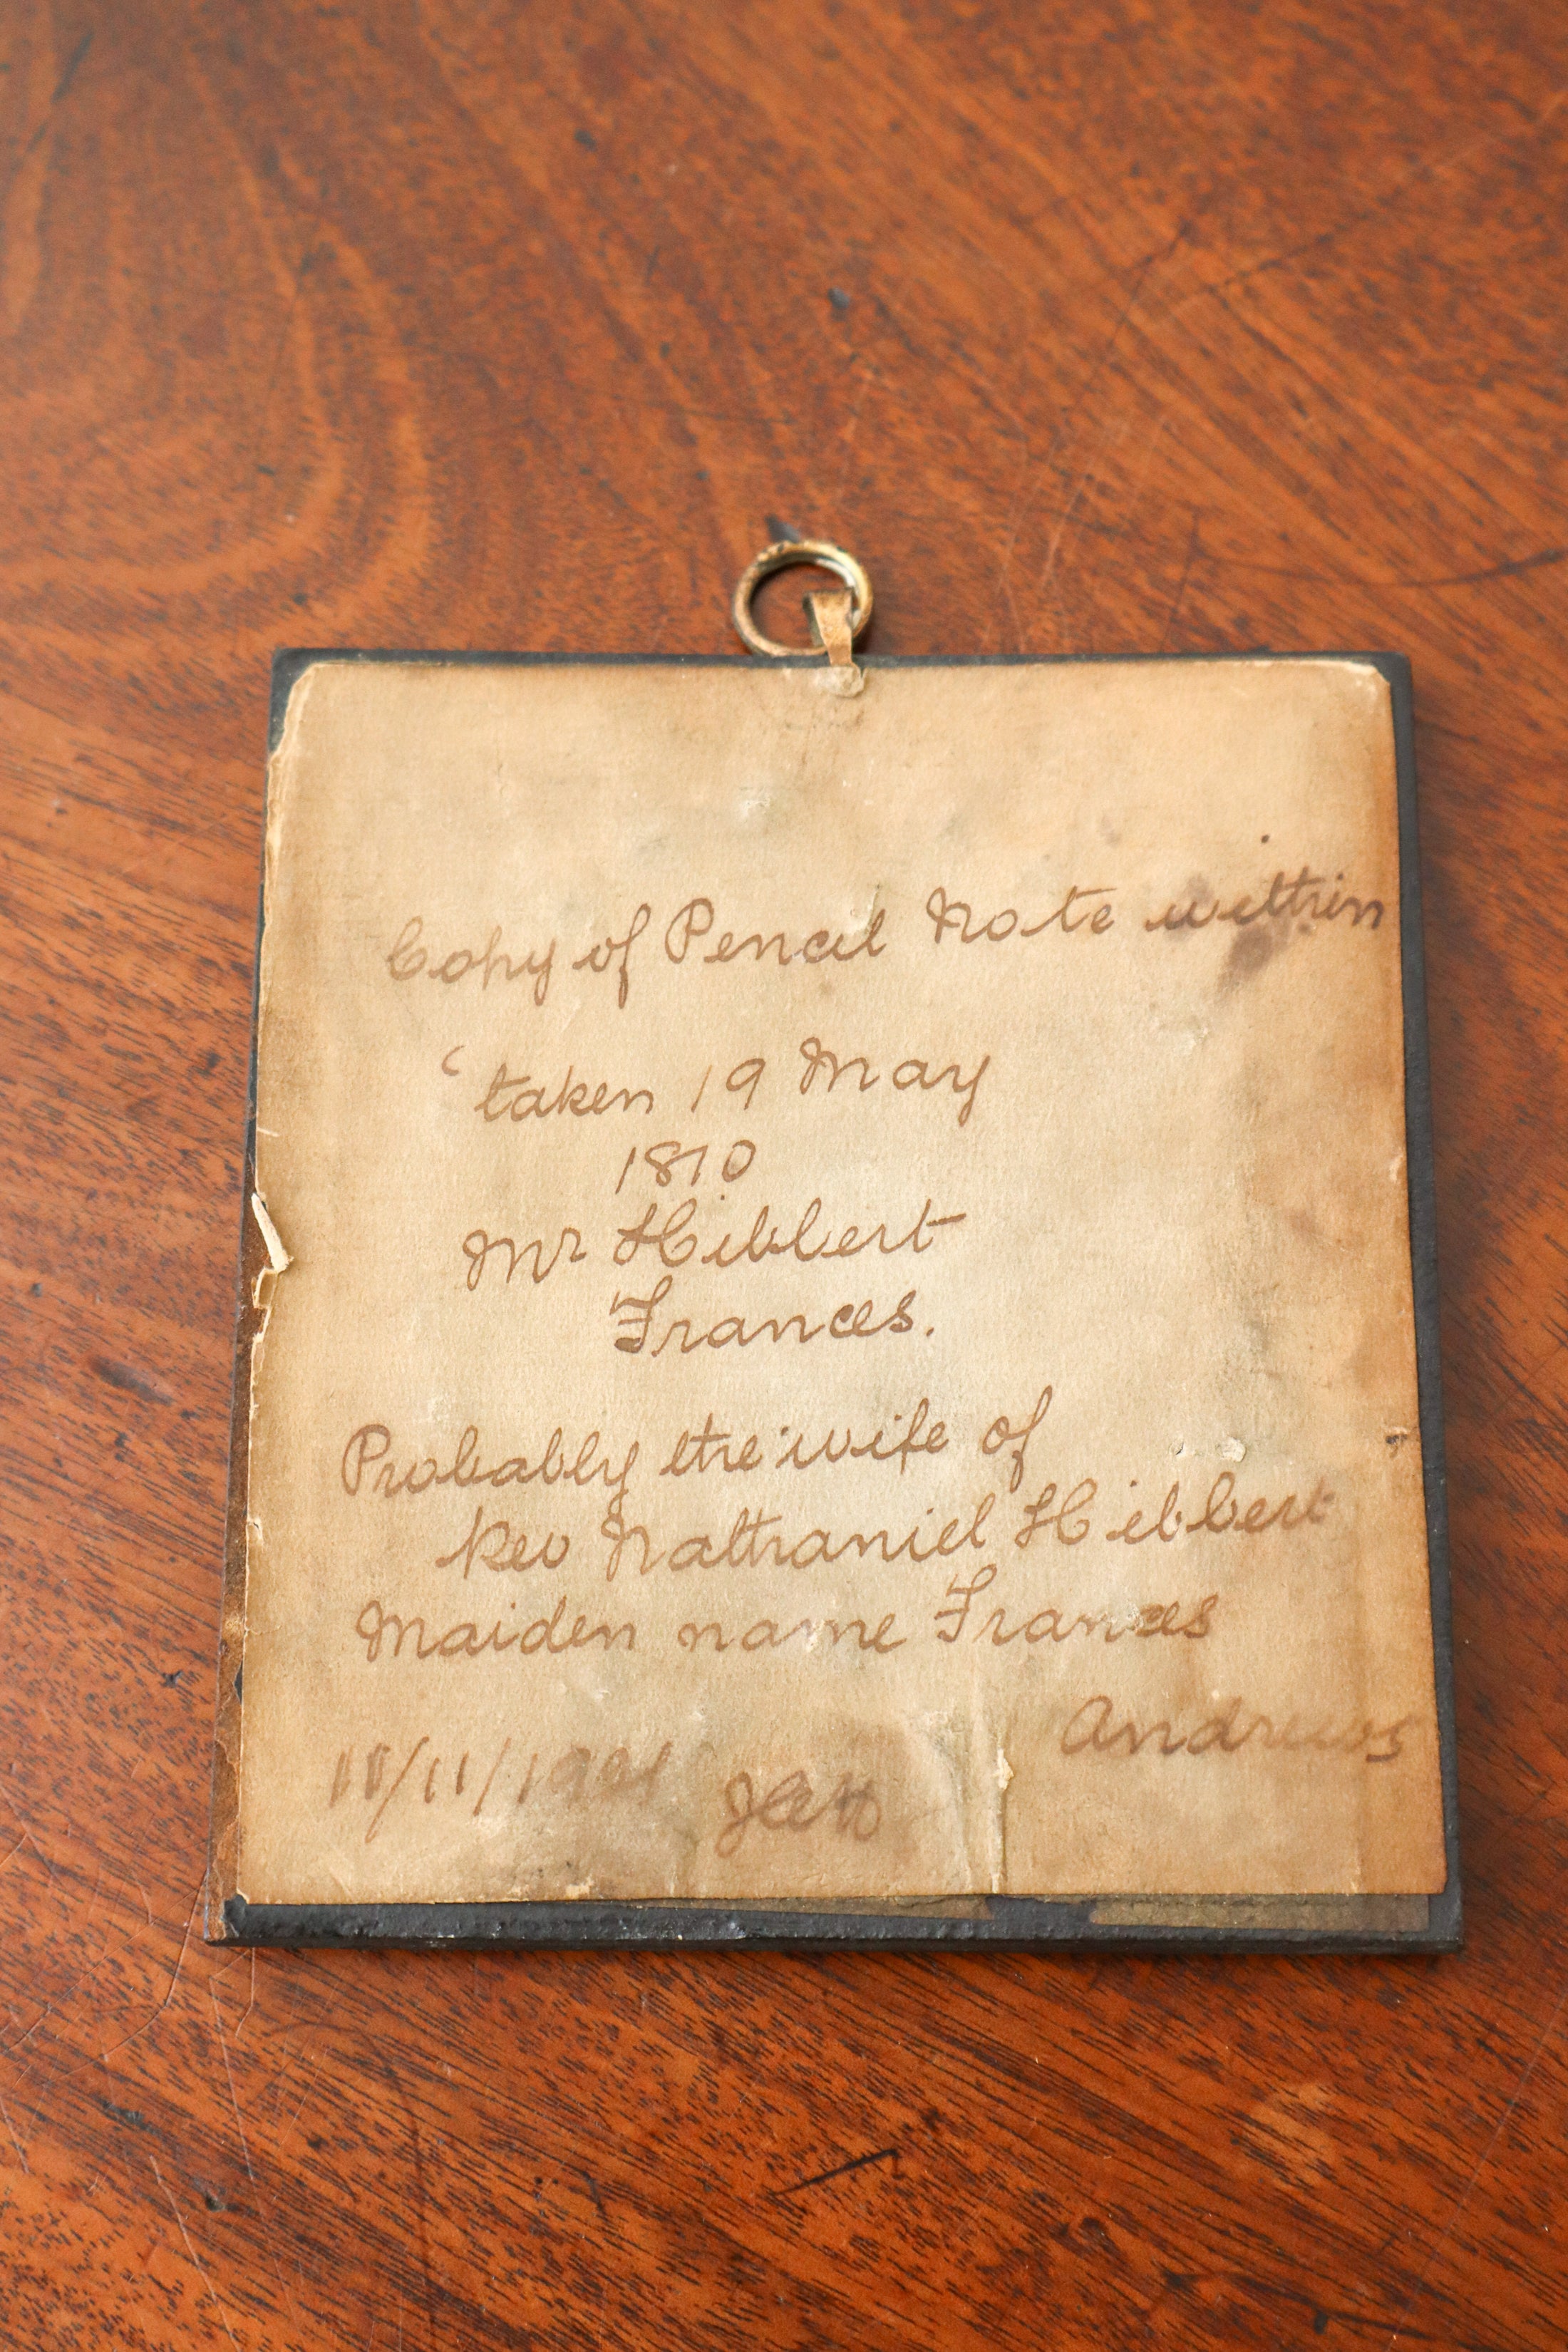 Copy of Pencil Note within
‘taken 19 May
1810
Mr Hibbert
Frances.
Probably the wife of
Rev Nathaniel Hibbert
Maiden name Frances
Andrews